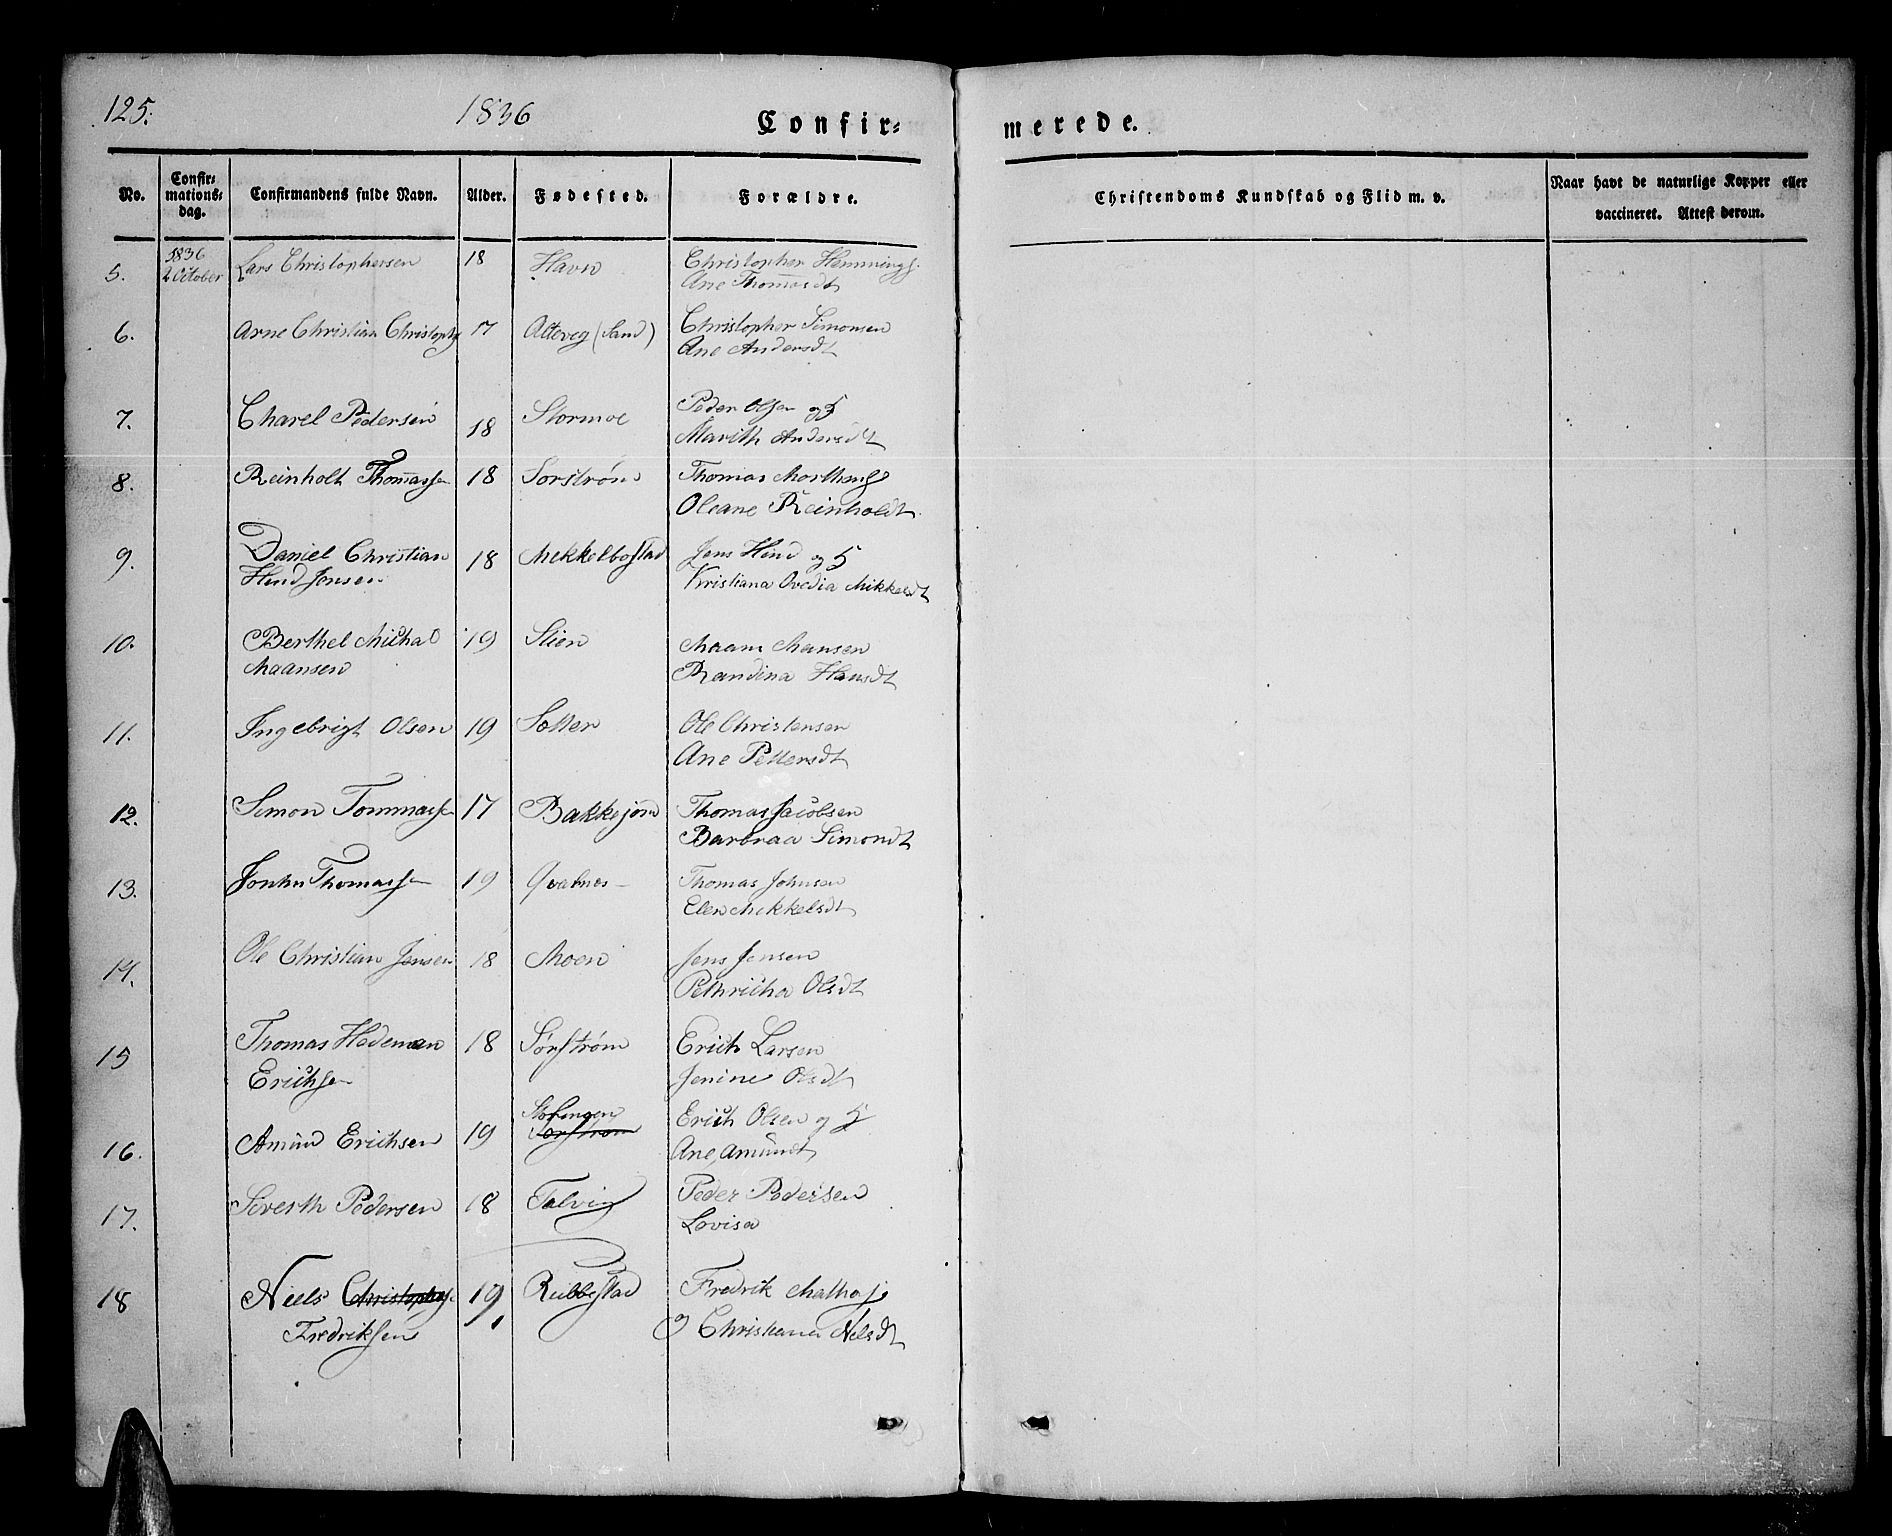 125.
1836
Confir=
merede.
No.
Confir=
mations=
dag.
Confirmandens fulde Navn.
Alder.
Fødested.
Forældre.
Christendoms Kundskab og Flid m. v.
Naar havt de naturlige Kopper eller
vaccineret. Attest derom.
5. 1836 2 October Lars Christophersen 18 Havn Christopher Hemmings.
Ane Thomasdt
6. Arne Christian Christophs 17 (Sand) Christopher Simonsen
Ane Andersdt
7. Charel Pedersen 18 Stormoe Peder Olsen og
Marith Andersdt
8. Reinholt Thomassen 18 Sorstrøm Thomas
Oleane Reinholdt
9. Daniel Christian 18 Mekkelbostad Jens Hind og
Hind Jensen Kristiana Ovedia Mikkelsdt
10. Berthel Michal 19 Stien Maans Mansen
Maansen Randina Hansdt
11. Ingebrigt Olsen 19 Ole Christensen
Ane Pettersdt
12. Simon Tommassen 17 Bakkejord Thomas Jacobsen
Barbraa Simondt
13. Thomassen 19 Qvalnes Thomas Johnsen
Elen Mekkelsdt
14. Ole Christian Jensen 18 Moen Jens Jensen
Pethricha Olsdt
15 Thomas Hademan 18 Sørstrøm Erich Larsen
Erichsen Jenine Olsdt
16. Amund Erichsen 19 Sorstrøm Erich Olsen og
Ane Amundt
17. Siverth Pedersen 18 Talvig Peder Pedersen
Lovisa
18 Niels Christophers 19 Rubbestad Fredrik
Fredriksen og Christiana Nelsdt